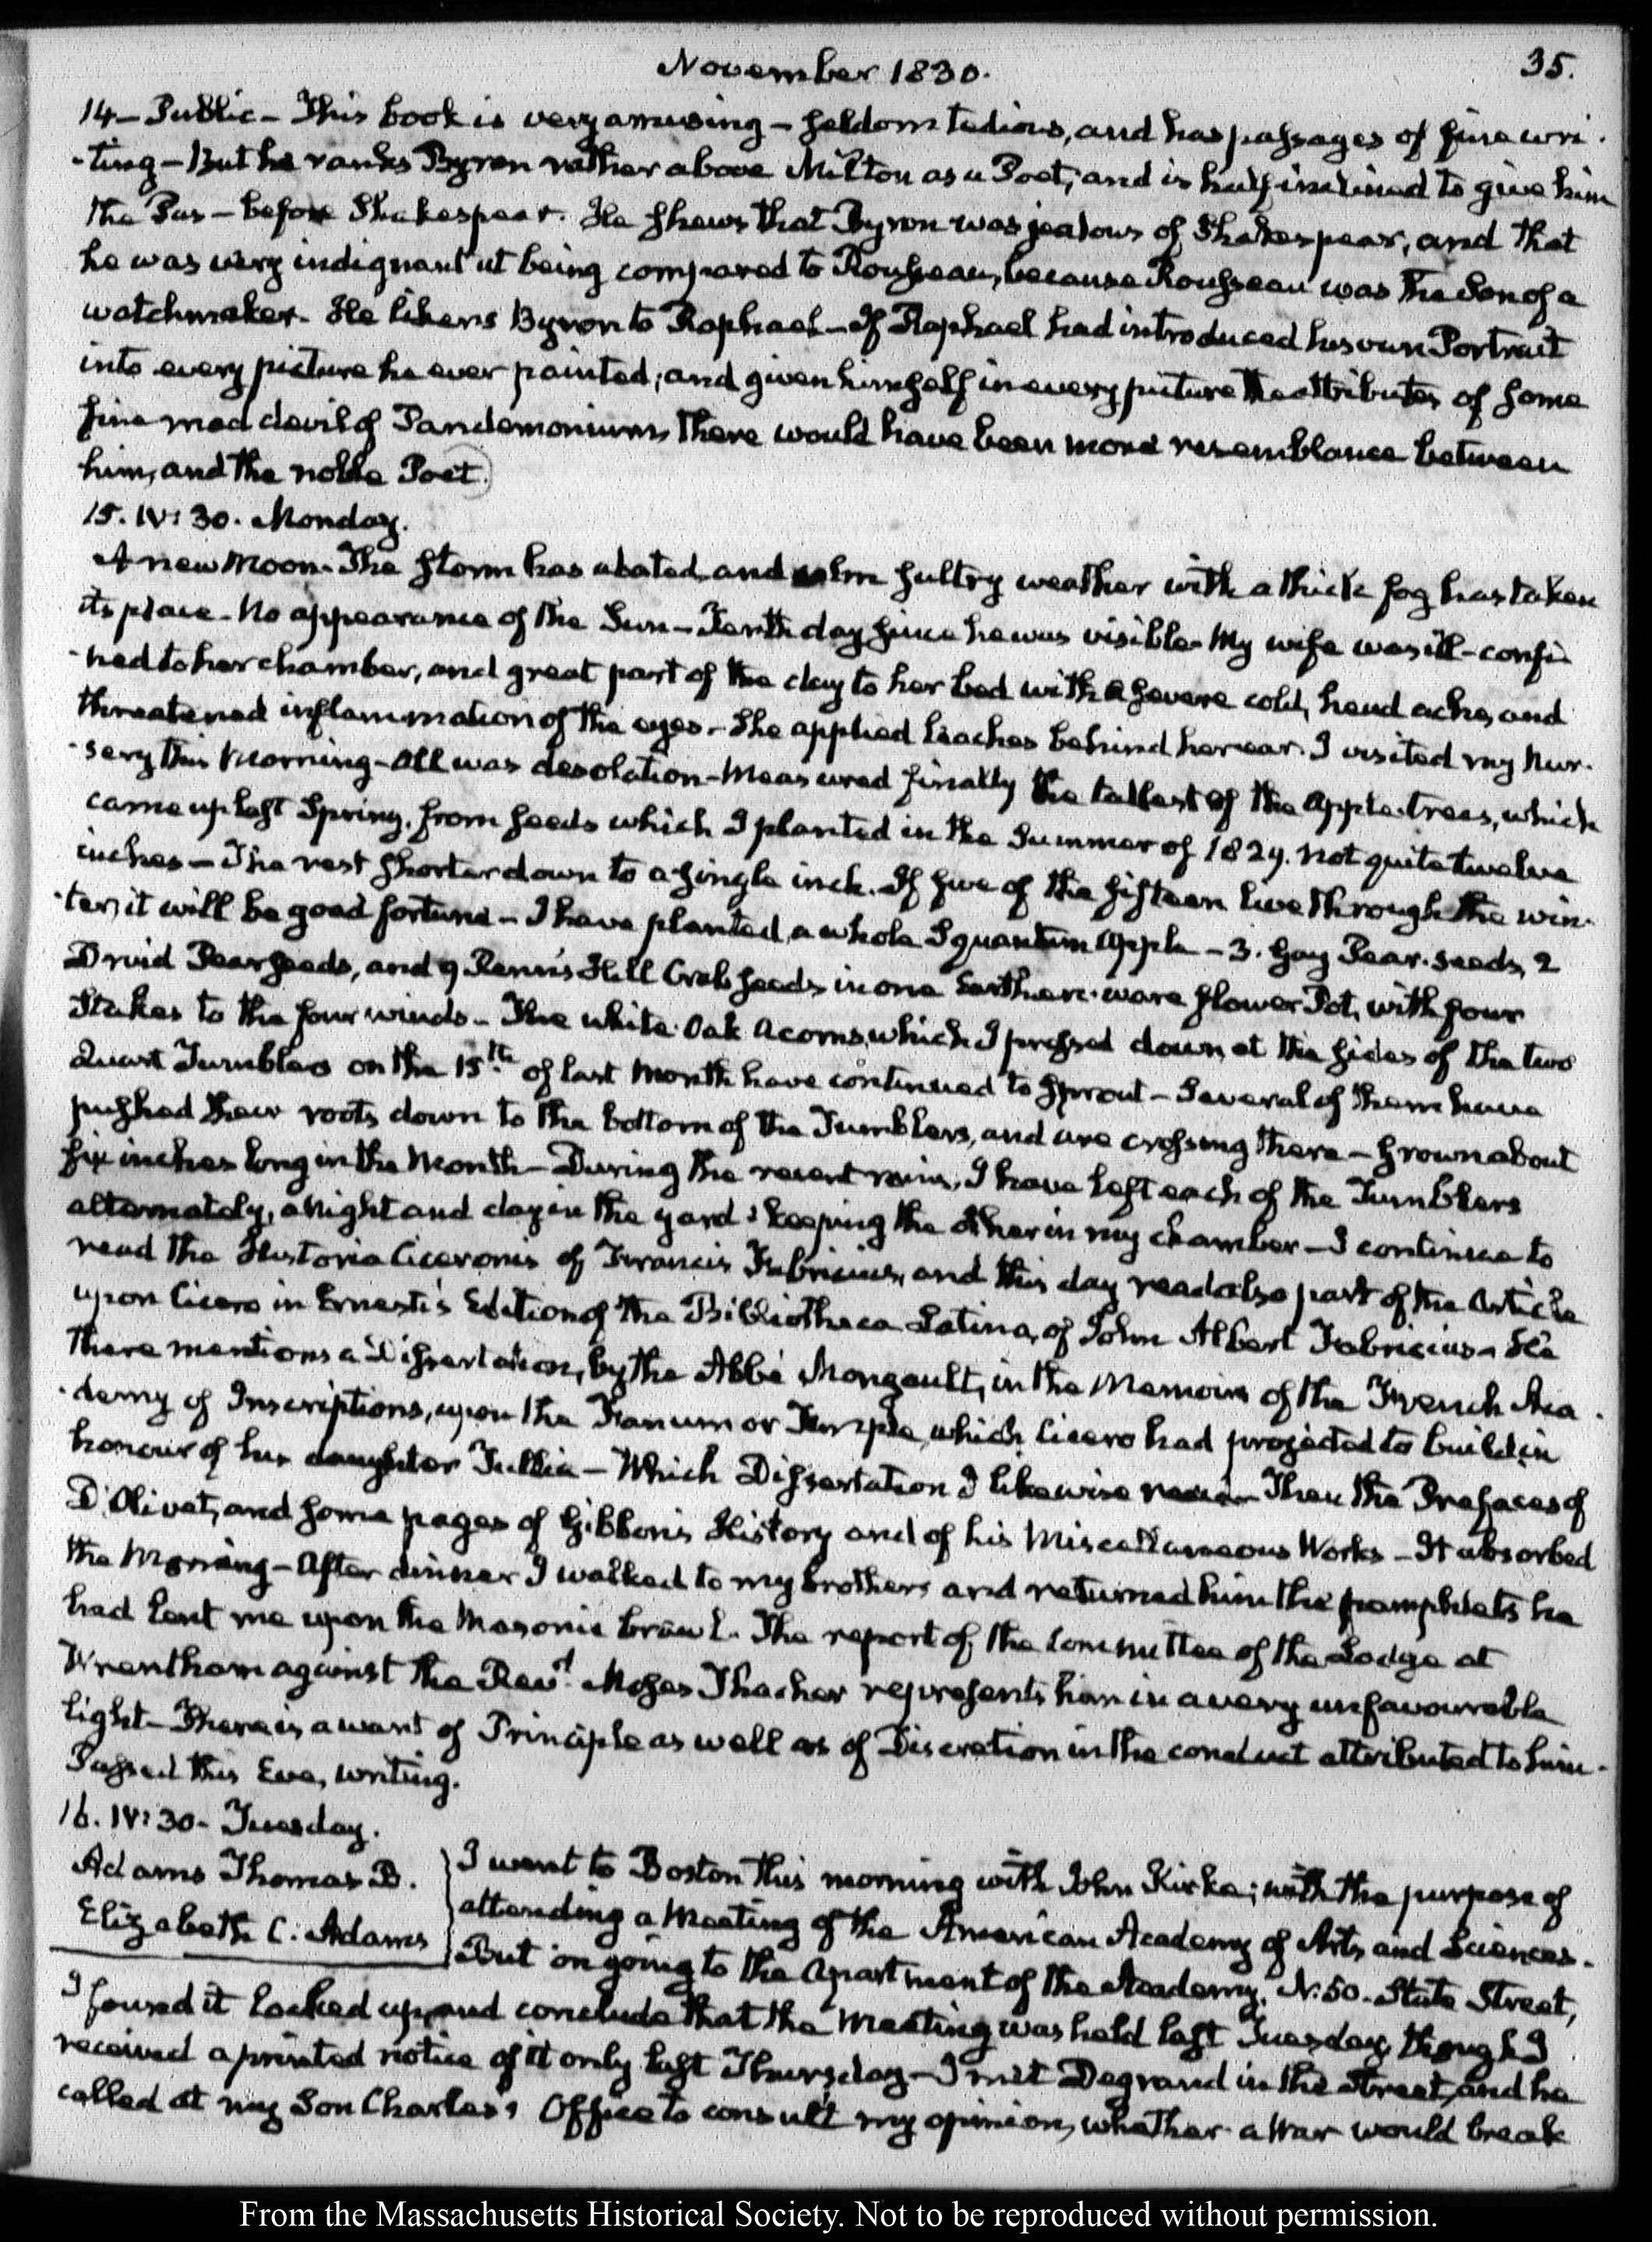 November 1830.
35.
14 – Public – This book is very amusing – seldom tedious, and has passages of fine wri-
-ting – But he ranks Byron rather above Milton as a Poet, and is half inclined to give him
the Pas – before Shakespear. He shews that Byron was jealous of Shakespear, and that
he was very indignant at being compared to Rousseau, because Rousseau was the Son of a
watchmaker. He likens Byron to Raphael – If Raphael had introduced his own Portrait
into every picture he ever painted, and given himself in every picture the attributes of some
fine mad devil of Pandemonium, there would have been more resemblance between
him, and the noble Poet.
15. IV: 30. Monday.
A new Moon. The storm has abated, and calm sultry weather with a thick fog has taken
its place. No appearance of the Sun – Tenth day since he was visible. My wife was ill – confi-
-ned to her chamber, and great part of the day to her bed with a severe cold, head ache, and
threatened inflammation of the eyes. She applied leaches behind her ear. I visited my Nur-
-sery this Morning – All was desolation – Measured finally the tallest of the Apple-trees, which
came up last Spring, from seeds which I planted in the Summer of 1829. not quite twelve
inches – The rest shorter down to a single inch. If five of the fifteen live through the win-
-ter, it will be good fortune – I have planted, a whole Squantum Apple – 3. Gay Pear-seeds, 2
Druid Pear seeds, and 9 Penn's Hill Crab seeds in one Earthen-ware flower Pot, with four
Stakes to the four winds – The white Oak Acorns, which I pressed down, at the sides of the two
Quart Tumblers on the 15th. of last Month have continued to sprout – Several of them have
pushed their roots down to the bottom of the Tumblers, and are crossing there – grown about
six inches long in the Month – During the recent rains, I have left each of the Tumblers
alternately, a Night and day in the yard: keeping the other in my chamber – I continue to
read the Historia Ciceronis of Francis Fabricius, and this day read also part of the Article
upon Cicero in Ernesti's Edition of the Bibliotheca Latina, of John Albert Fabricius – He
there mentions a Dissertation, by the Abbé Mongault, in the Memoirs of the French Aca-
-demy of Inscriptions, upon the Fanum or Temple, which Cicero had projected to build in
honour of his daughter Tullia – Which Dissertation I likewise read – Then the Prefaces of
D'Olivet, and some pages of Gibbon's History and of his Miscellaneous Works – It absorbed
the Morning – After dinner I walked to my brothers and returned him the pamphlets he
had lent me upon the Masonic brawl. The report of the Committee of the Lodge at
Wrentham against the Revd. Moses Thacher represents him in a very unfavourable
light – There is a want of Principle as well as of Discretion in the conduct attributed to him.
Passed this Eve, writing.
16. IV: 30. Tuesday.
Adams Thomas B.
Elizabeth C. Adams
I went to Boston this morning with John Kirke; with the purpose of
attending a Meeting of the American Academy of Arts and Sciences.
But on going to the Apartment of the Academy, N. 50. State Street,
I found it locked up, and conclude that the Meeting was held last Tuesday, though I
received a printed notice of it only last Thursday – I met Degrand in the Street, and he
called at my Son Charles's Office to consult my opinion, whether a War would break
From the Massachusetts Historical Society. Not to be reproduced without permission.